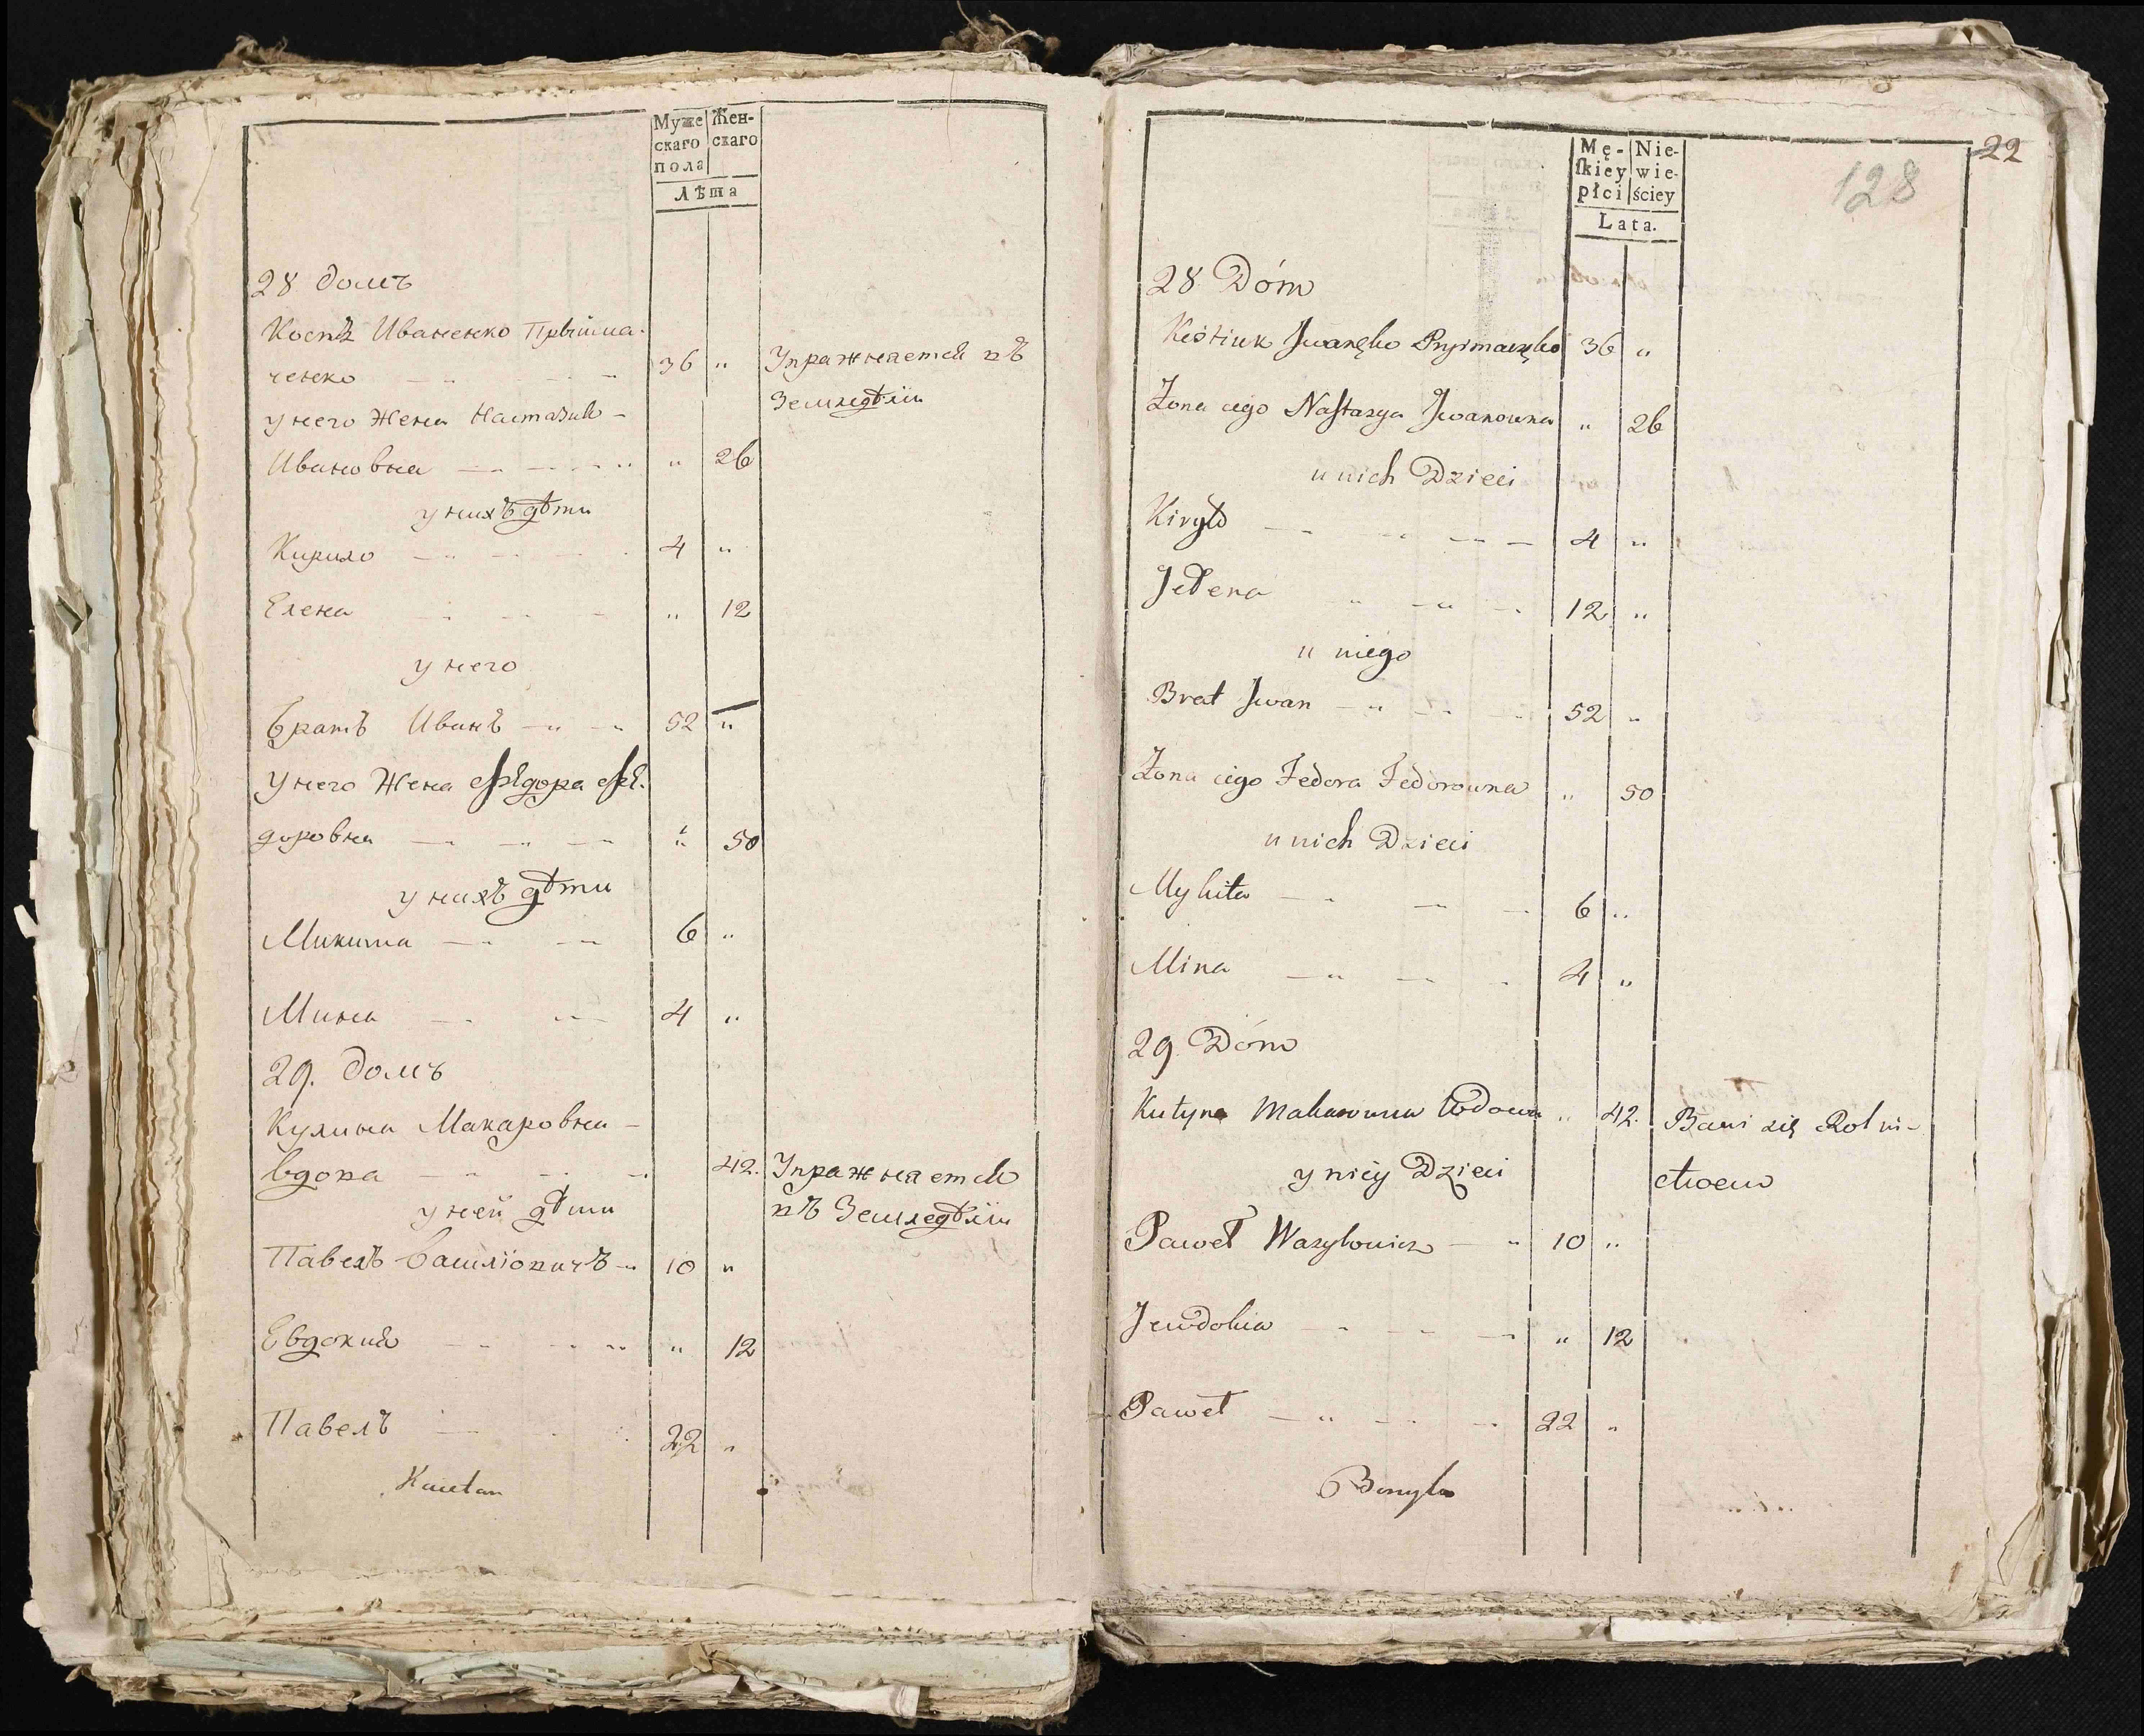 Муже Жен-
скаго скаго
пола
Лѣта
28 домъ
Костъ Иваненко Прыйма-
ченко 36 " Упражняется въ
Земледѣліи
у него Жена Настазия
Ивановна " 26
у нихъ дѣти
Кирило 4 "
Елена " 12
у него
братъ Иванъ 52 "
у него Жена Федора Фе-
доровна " 50
у нихъ дѣти
Микита 6 "
Мина 4 "
29. домъ
Кулина Макаровна
вдова 42. Упражняется
въ Земледѣліи
у ней дѣти
Павелъ Василіовичъ 10 "
Евдокия " 12
Павелъ 22 "
22
128
Mę- Nie-
ſkiey wie-
płci ściey
Lata.
28 Dóm
Kostiuk Jwanęko Pryimaczęko 36 "
Żona iego Naſtazya Jwanowna " 26
u nich Dzieci
Kiryło 4 "
Jełena 12 "
u niego
Brat Jwan 52 "
Żona iego Fedora Fedorowna " 50
u nich Dzieci
Mykita 6 "
Mina 4 "
29 Dóm
Kułyna Makarowna Wdowa " 42. Bawi się Rolni-
ctwem
y niey Dzieci
Paweł Wasylowicz 10 "
Jewdokia " 12
Paweł 22 "